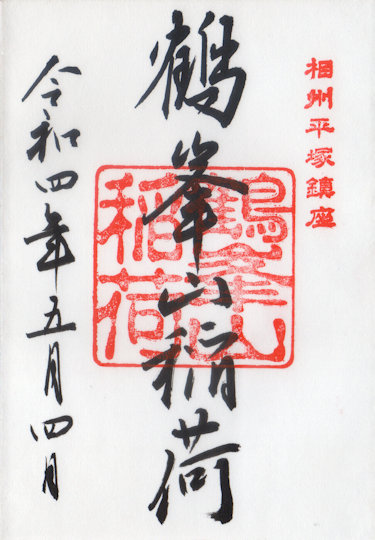 相州平塚鎮座
鶴峯山稲荷
鶴峯山
稲荷
令和四年五月四日